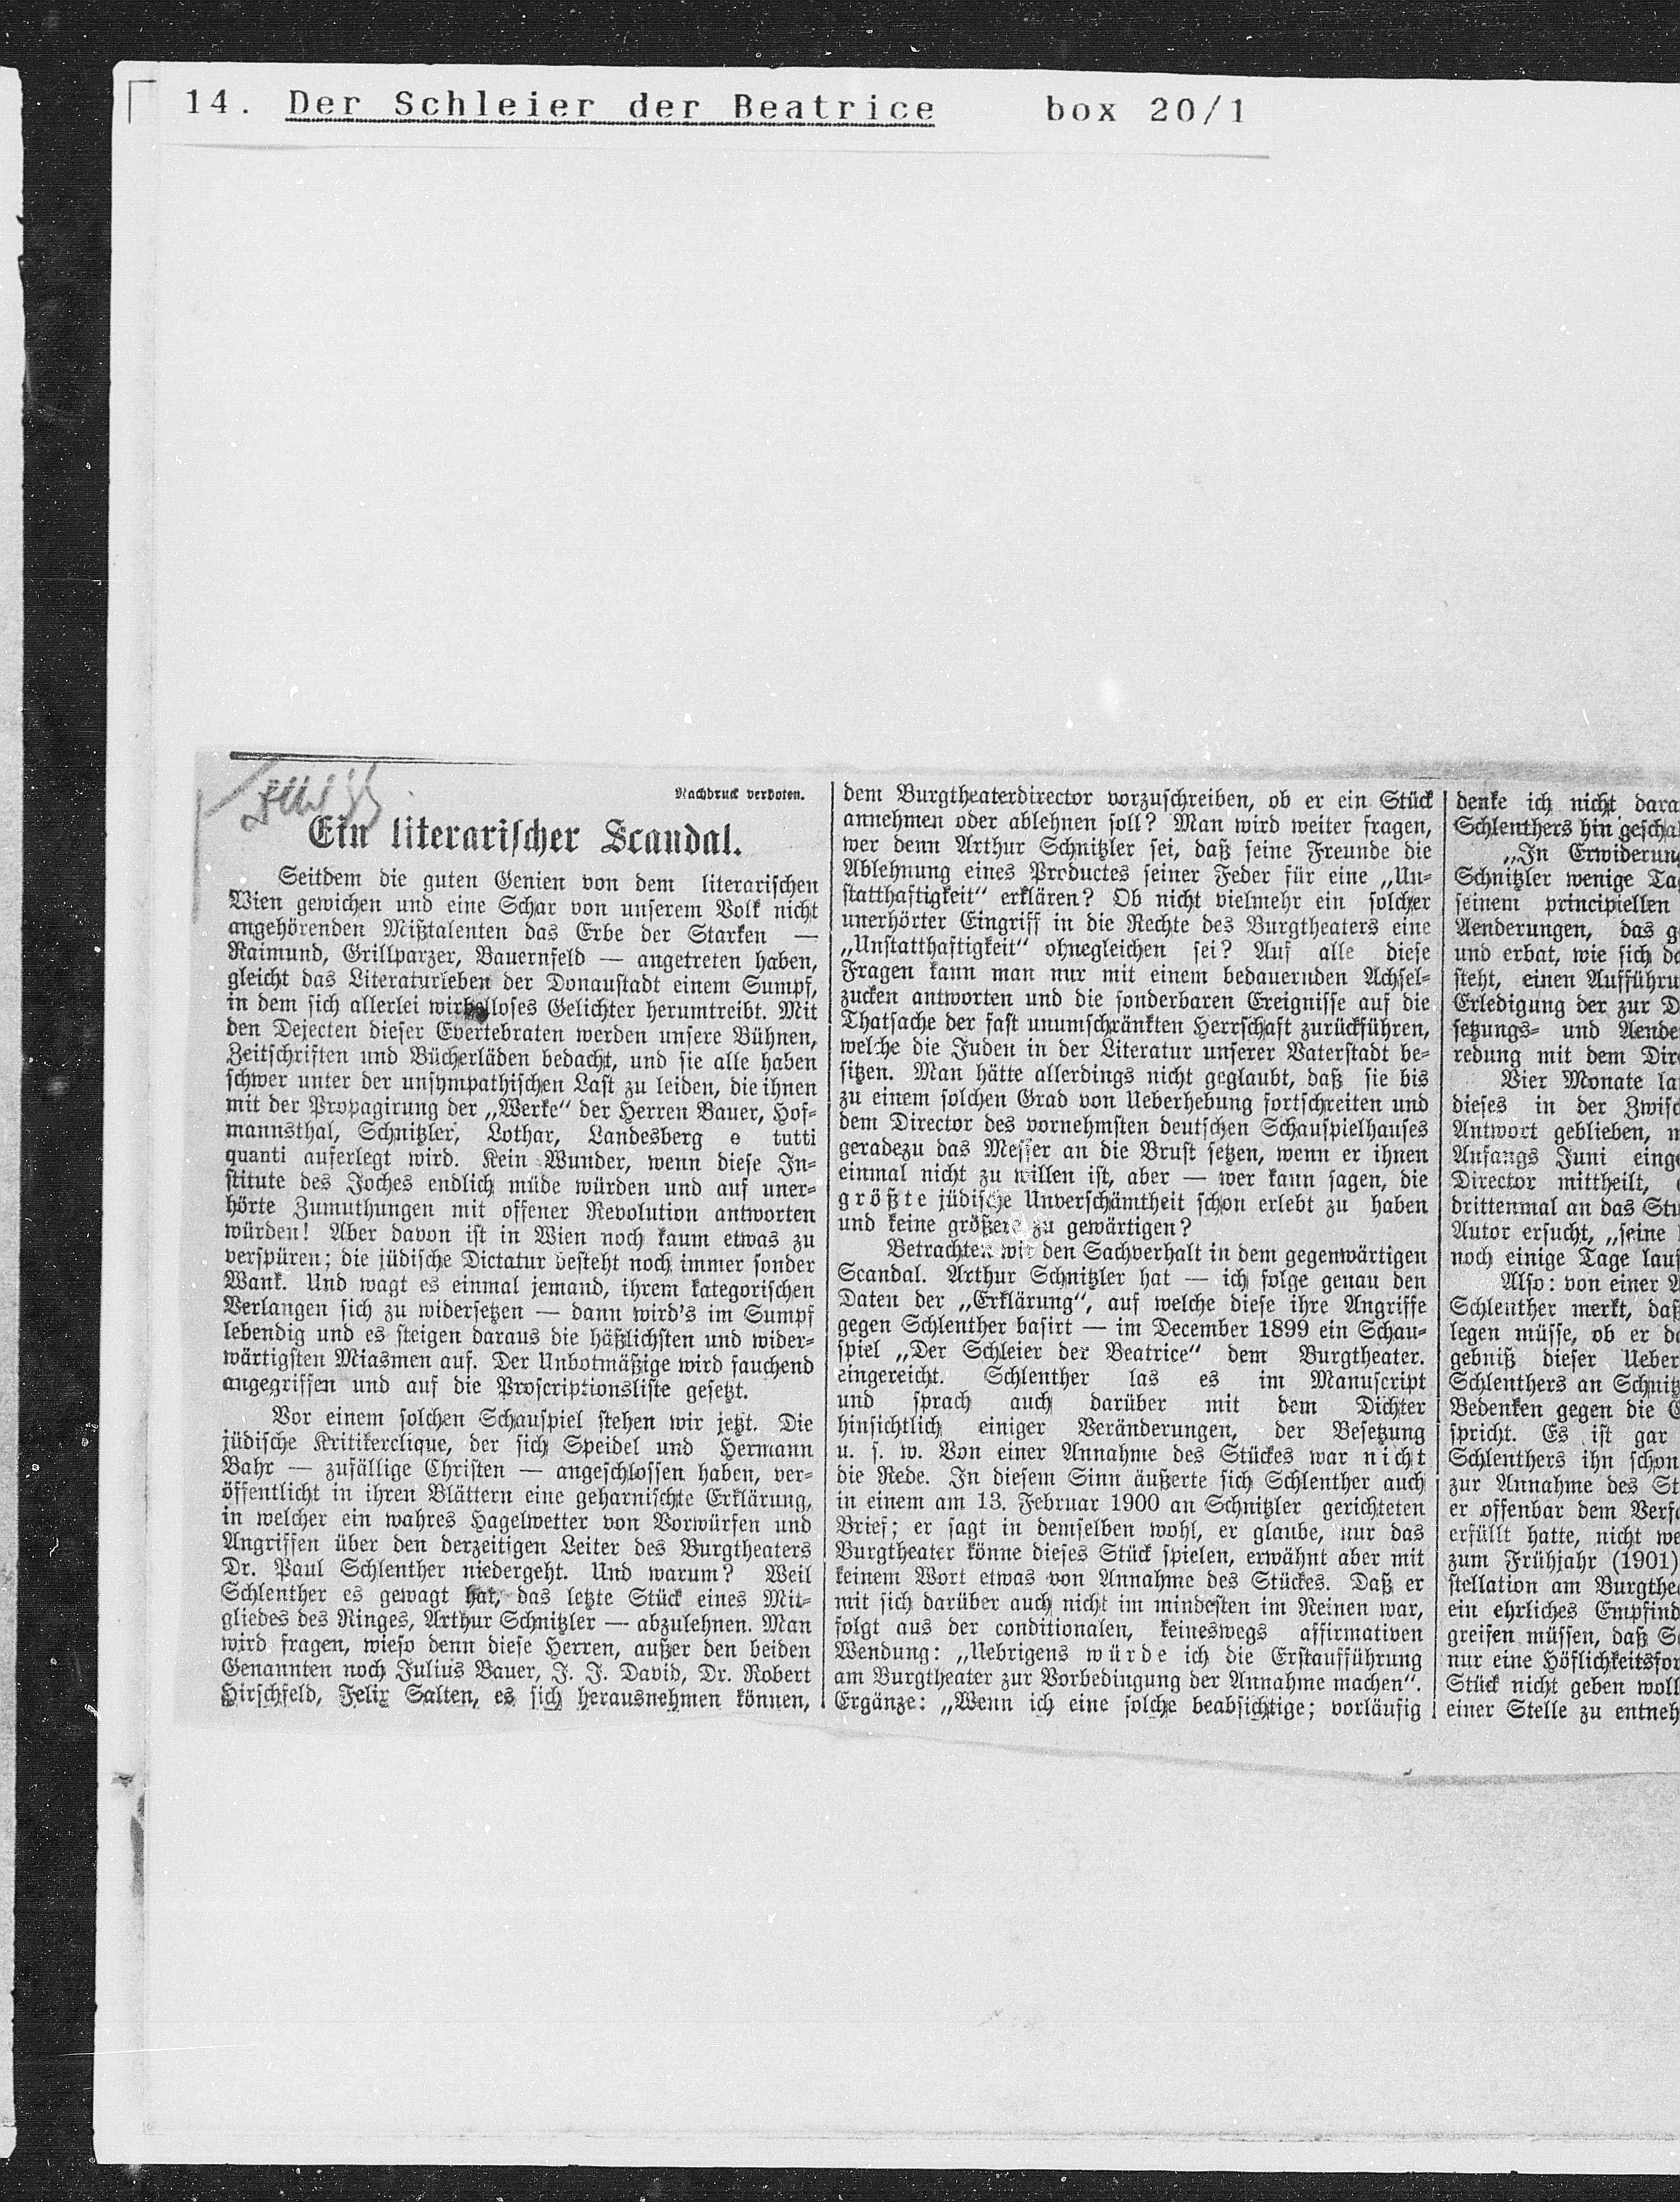 14. Der Schleier der Beatrice box 20/1
Nachdruck verboten.
Ein literarischer Scandal.
Seitdem die guten Genien von dem literarischen
Wien gewichen und eine Schar von unserem Volk nicht
angehörenden Mißtalenten das Erbe der Starken —
Raimund, Grillparzer, Bauernfeld — angetreten haben,
gleicht das Literaturleben der Donaustadt einem Sumpf,
in dem sich allerlei wirbelloses Gelichter herumtreibt. Mit
den Dejecten dieser Evertebraten werden unsere Bühnen,
Zeitschriften und Bücherläden bedacht, und sie alle haben
schwer unter der unsympathischen Last zu leiden, die ihnen
mit der Propagirung der „Werke“ der Herren Bauer, Hof-
mannsthal, Schnitzler, Lothar, Landesberg e tutti
quanti auferlegt wird. Kein Wunder, wenn diese In-
stitute des Joches endlich müde würden und auf uner-
hörte Zumuthungen mit offener Revolution antworten
würden! Aber davon ist in Wien noch kaum etwas zu
verspüren; die jüdische Dictatur besteht noch immer sonder
Wank. Und wagt es einmal jemand, ihrem kategorischen
Verlangen sich zu widersetzen — dann wird's im Sumpf
lebendig und es steigen daraus die häßlichsten und wider-
wärtigsten Miasmen auf. Der Unbotmäßige wird fauchend
angegriffen und auf die Proscriptionsliste gesetzt.
Vor einem solchen Schauspiel stehen wir jetzt. Die
jüdische Kritikerclique, der sich Speidel und Hermann
Bahr — zufällige Christen — angeschlossen haben, ver-
öffentlicht in ihren Blättern eine geharnischte Erklärung,
in welcher ein wahres Hagelwetter von Vorwürfen und
Angriffen über den derzeitigen Leiter des Burgtheaters
Dr. Paul Schlenther niedergeht. Und warum? Weil
Schlenther es gewagt hat, das letzte Stück eines Mit-
gliedes des Ringes, Arthur Schnitzler — abzulehnen. Man
wird fragen, wieso denn diese Herren, außer den beiden
Genannten noch Julius Bauer, J. J. David, Dr. Robert
Hirschfeld, Felix Salten, es sich herausnehmen können,
dem Burgtheaterdirector vorzuschreiben, ob er ein Stück
annehmen oder ablehnen soll? Man wird weiter fragen,
wer denn Arthur Schnitzler sei, daß seine Freunde die
Ablehnung eines Productes seiner Feder für eine „Un-
statthaftigkeit“ erklären? Ob nicht vielmehr ein solcher
unerhörter Eingriff in die Rechte des Burgtheaters eine
„Unstatthaftigkeit“ ohnegleichen sei? Auf alle diese
Fragen kann man nur mit einem bedauernden Achsel-
zucken antworten und die sonderbaren Ereignisse auf die
Thatsache der fast unumschränkten Herrschaft zurückführen,
welche die Juden in der Literatur unserer Vaterstadt be-
sitzen. Man hätte allerdings nicht geglaubt, daß sie bis
zu einem solchen Grad von Ueberhebung fortschreiten und
dem Director des vornehmsten deutschen Schauspielhauses
geradezu das Messer an die Brust setzen, wenn er ihnen
einmal nicht zu willen ist, aber — wer kann sagen, die
größte jüdische Unverschämtheit schon erlebt zu haben
und keine größere zu gewärtigen?
Betrachten wir den Sachverhalt in dem gegenwärtigen
Scandal. Arthur Schnitzler hat — ich folge genau den
Daten der „Erklärung“, auf welche diese ihre Angriffe
gegen Schlenther basirt — im December 1899 ein Schau-
spiel „Der Schleier der Beatrice“ dem Burgtheater.
eingereicht. Schlenther las es im Manuscript
und sprach auch darüber mit dem Dichter
hinsichtlich einiger Veränderungen, der Besetzung
u. s. w. Von einer Annahme des Stückes war nicht
die Rede. In diesem Sinn äußerte sich Schlenther auch
in einem am 13. Februar 1900 an Schnitzler gerichteten
Brief; er sagt in demselben wohl, er glaube, nur das
Burgtheater könne dieses Stück spielen, erwähnt aber mit
keinem Wort etwas von Annahme des Stückes. Daß er
mit sich darüber auch nicht im mindesten im Reinen war,
folgt aus der conditionalen, keineswegs affirmativen
Wendung: „Uebrigens würde ich die Erstaufführung
am Burgtheater zur Vorbedingung der Annahme machen“.
Ergänze: „Wenn ich eine solche beabsichtige; vorläufig
denke ich nicht dara
Schlenthers hin geschal
„In Erwiderung
Schnitzler wenige Ta
seinem principiellen
Aenderungen, das g
und erbat, wie sich d
steht, einen Aufführu
Erledigung der zur D
setzungs- und Aende
redung mit dem Dir
Vier Monate la
dieses in der Zwisc
Antwort geblieben, 
Anfangs Juni einge
Director mittheilt,
drittenmal an das Stü
Autor ersucht, „seine
noch einige Tage lau
Also: von einer A
Schlenther merkt, daß
legen müsse, ob er d
gebniß dieser Ueber
Schlenthers an Schnitz
Bedenken gegen die
spricht. Es ist gar
Schlenthers ihn schon
zur Annahme des St
er offenbar dem Verf
erfüllt hatte, nicht we
zum Frühjahr (1901)
stellation am Burgthe
ein ehrliches Empfind
greifen müssen, daß S
nur eine Höflichkeitsfor
Stück nicht geben woll
einer Stelle zu entneh